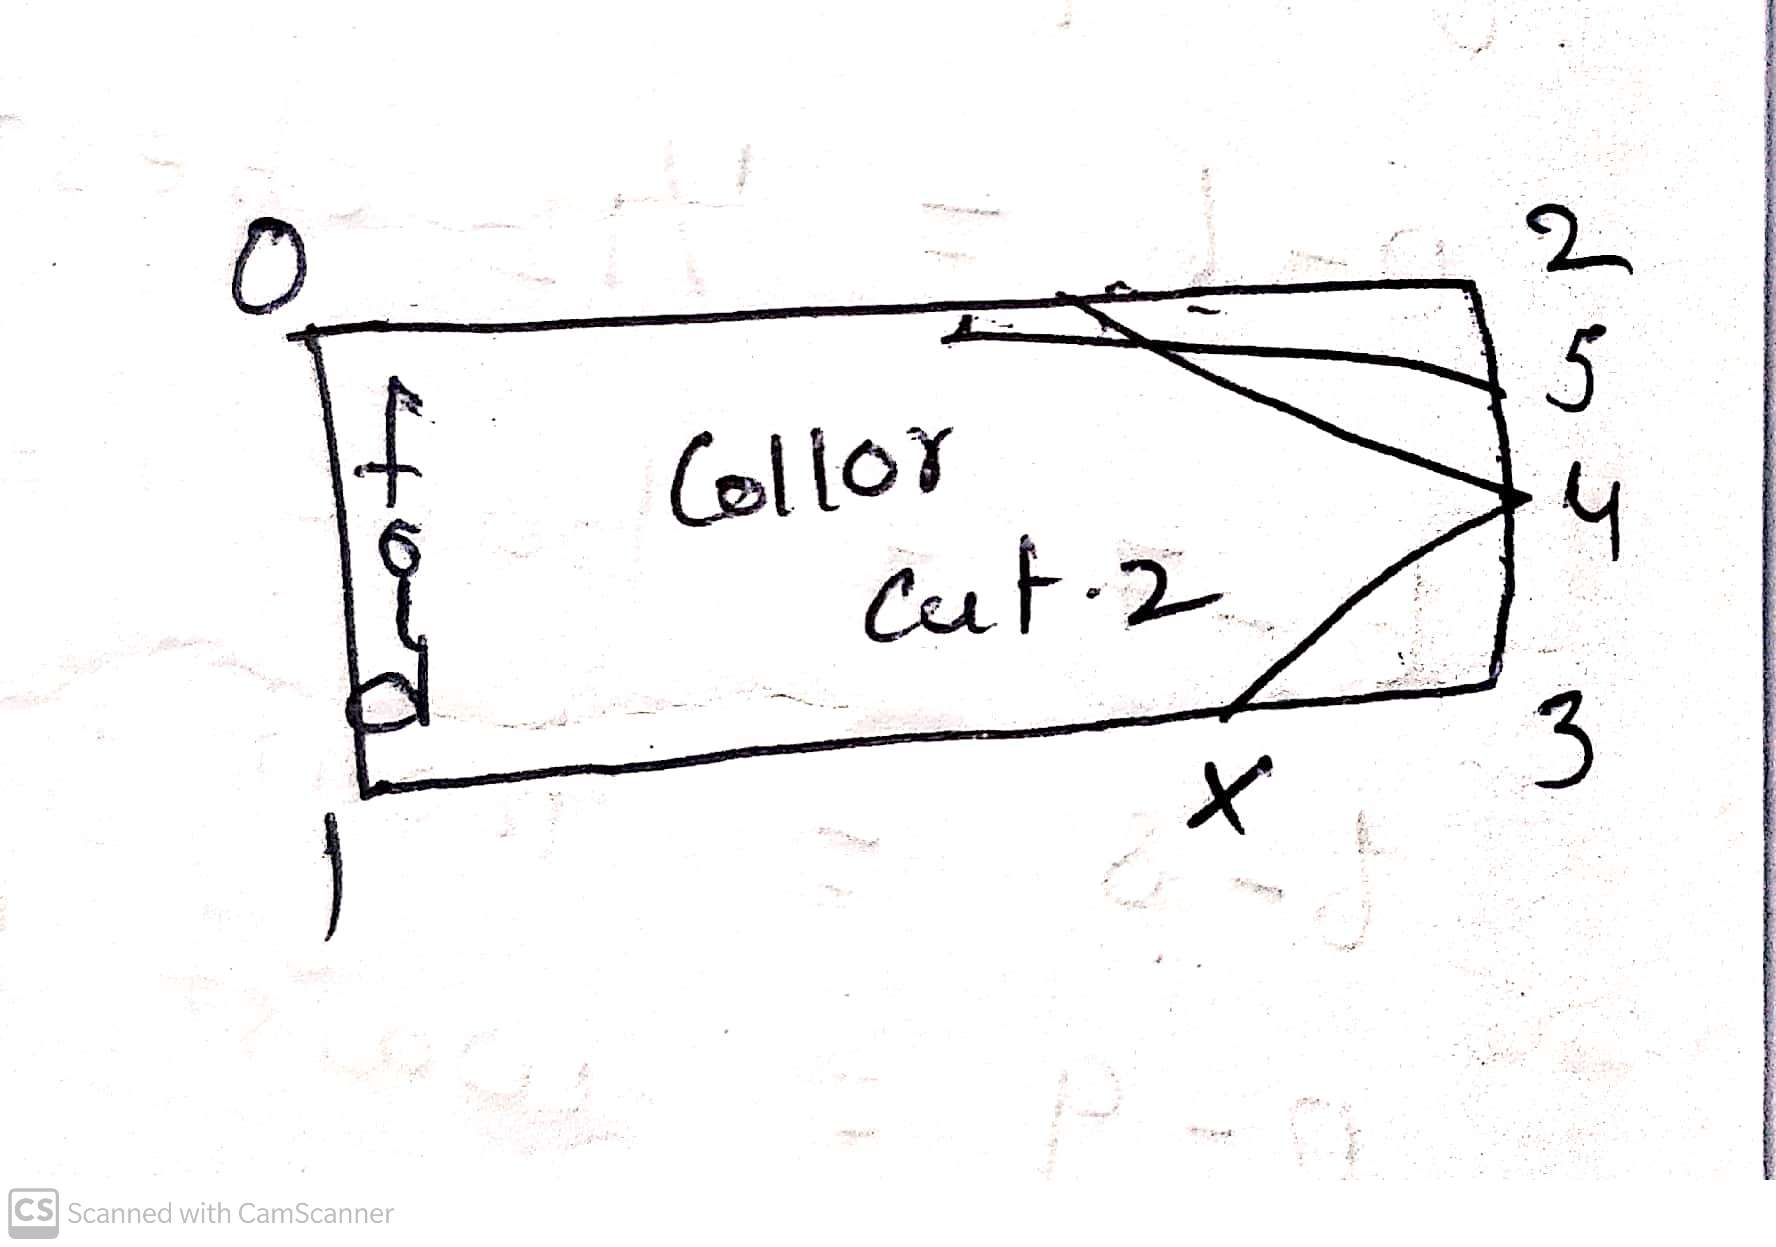 0
2
5
fold
Collor
4
Cut.2
3
x
1
CS Scanned with CamScanner